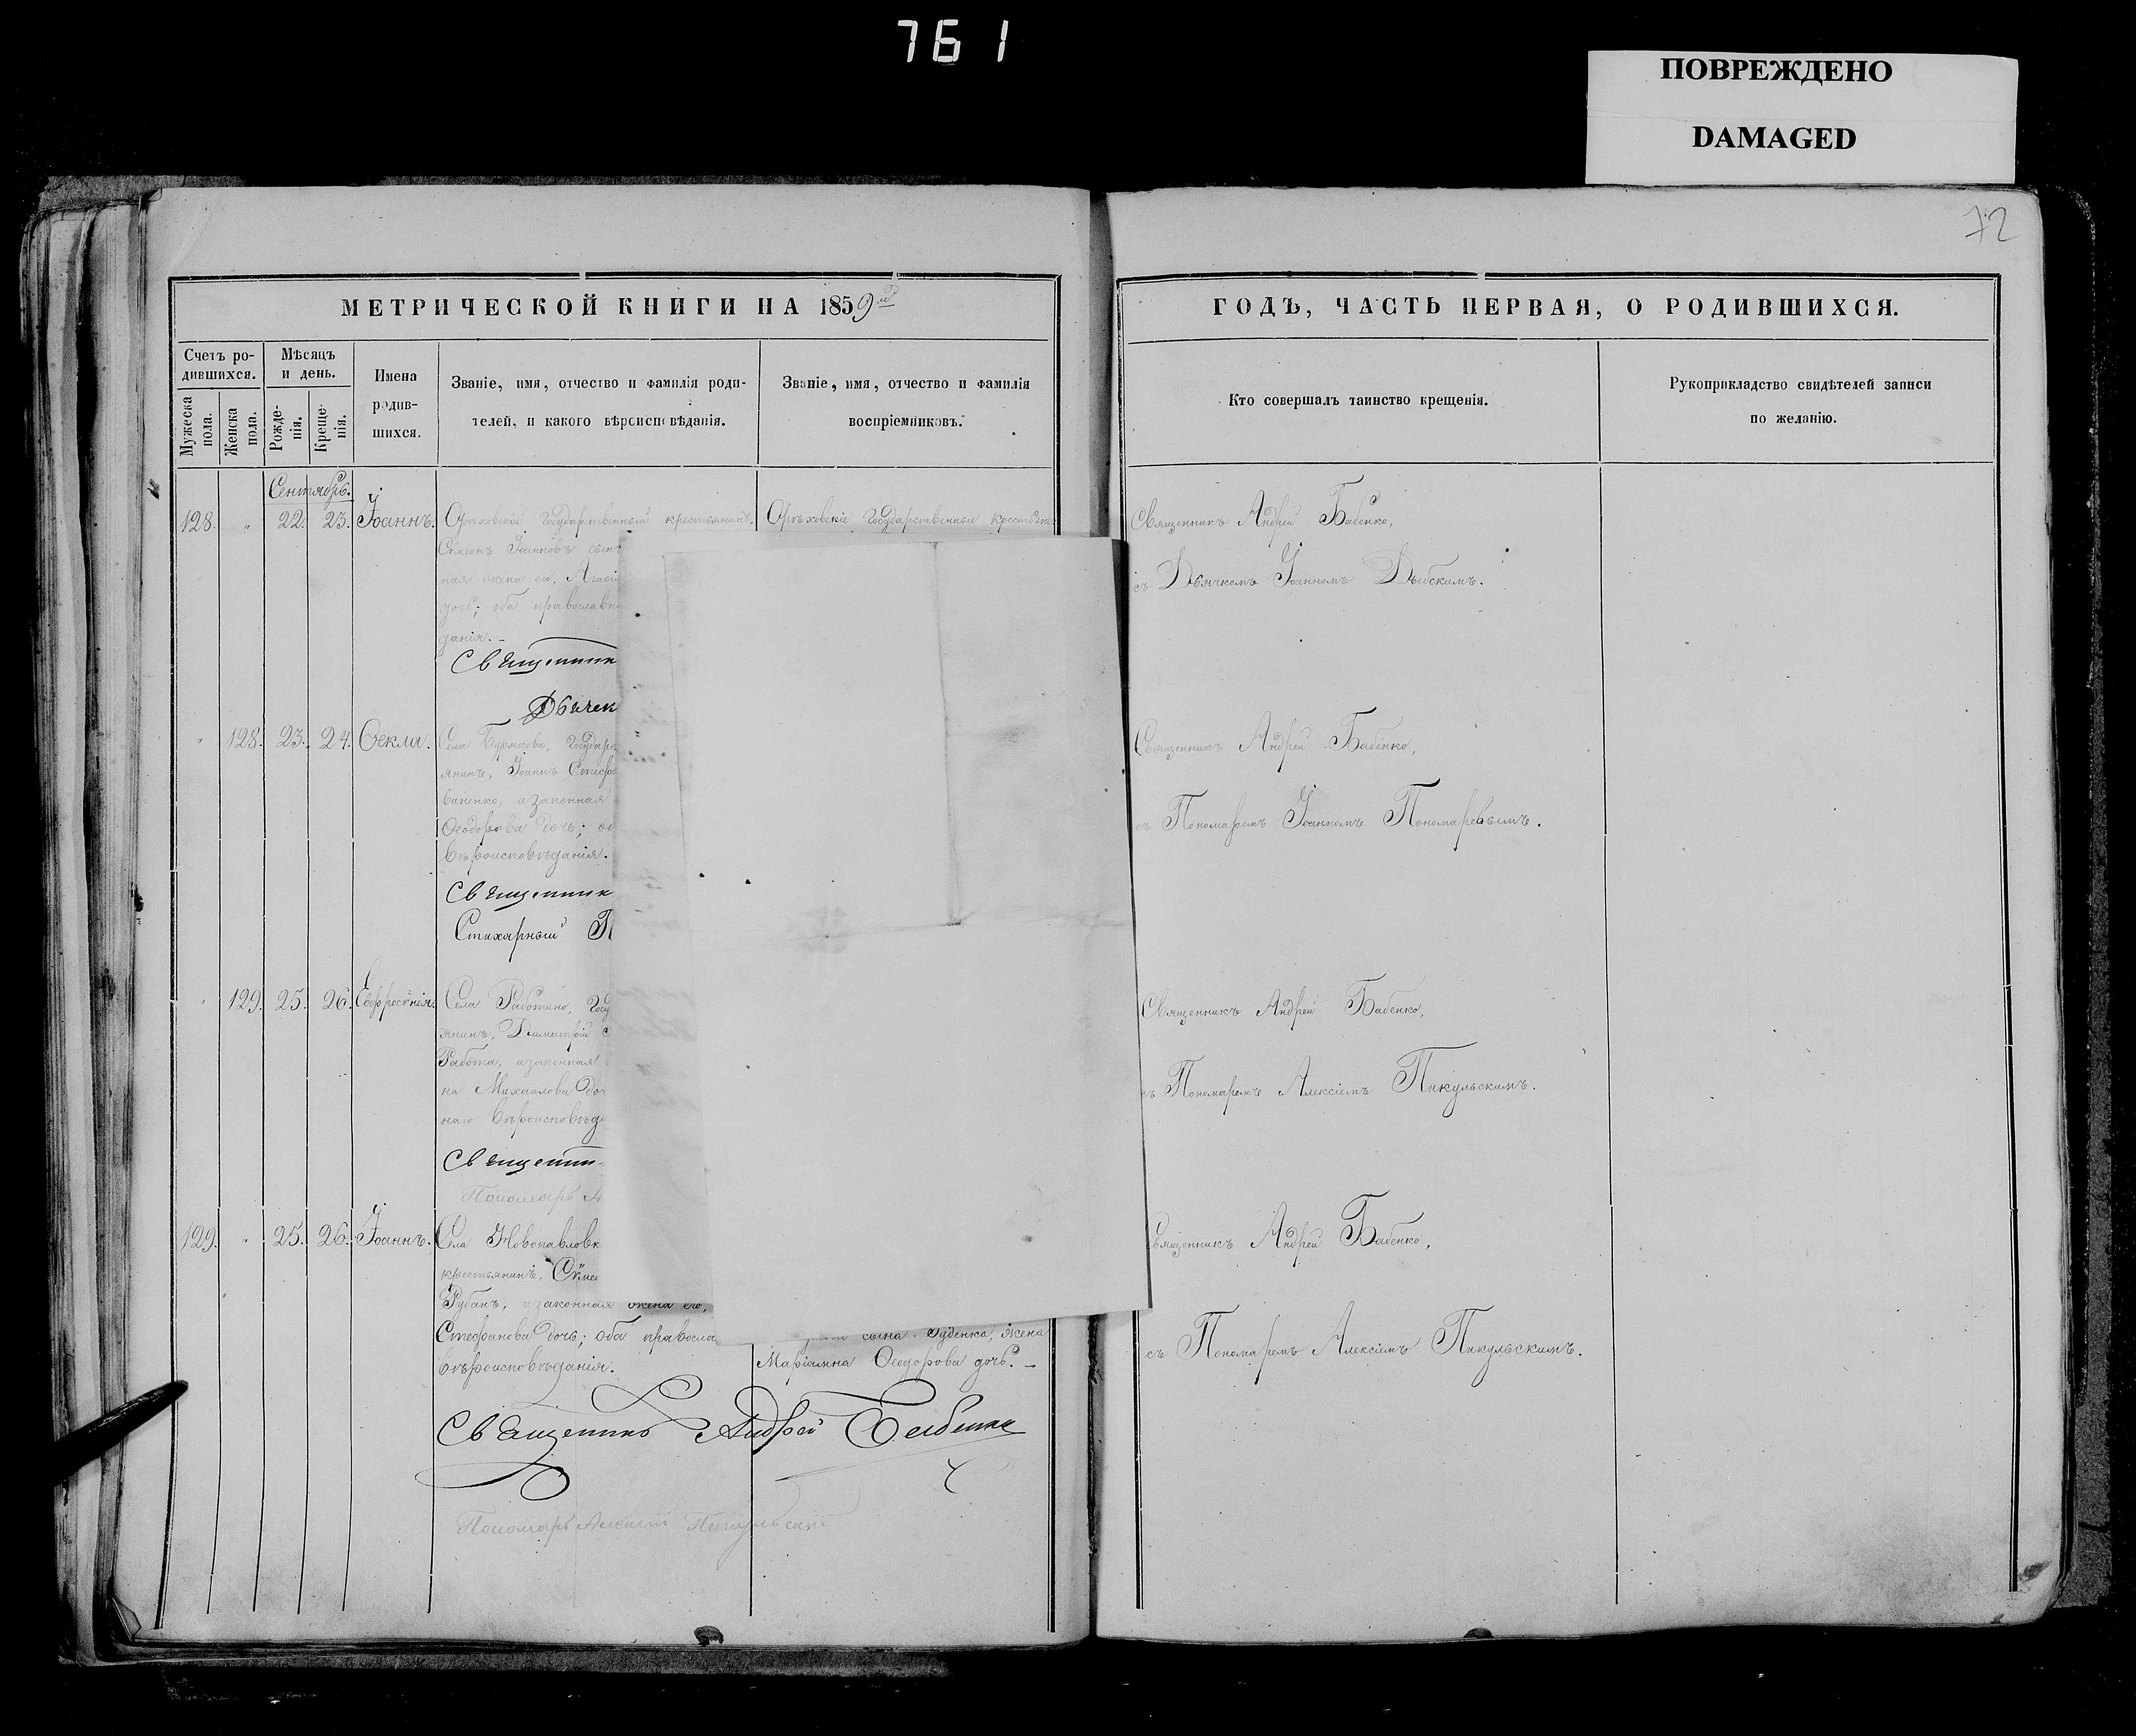 761
ПОВРЕЖДЕНО
DAMAGED
72
МЕТРИЧЕСКОЙ КНИГИ НА 1859й
ГОДЪ, ЧАСТЬ ПЕРВАЯ, О РОДИВШИХСЯ.
Счетъ ро-
дившихся.
Мужеска
пола.
Женска
пола.
Мѣсяцъ
и день.
Рожде-
нія.
Креще-
нія.
Имена
родив-
шихся.
Званіе, имя, отчество и фамилія роди-
телей, и какого вѣроисповѣданія.
Званіе, имя, отчество и фамилія
воспріемниковъ.
Кто совершалъ таинство крещенія.
Рукоприкладство свидѣтелей записи
по желанію.
Сентябрь.
128. " 22. 23. Іоаннъ.
Орѣховскій Государственный крестьянинъ,
Сѵмеонъ Іоанновъ сынъ
ная жена его,
дочь; оба православн
данія.
Священник
Дьячек
Орѣховскіе Государственные крестьяне
Священникъ Андрей Бабенко,
съ Дьячкомъ Іоанномъ
" 128. 23. 24. Ѳекла.
Села Бурякова, Государ
янинъ, Іоаннъ Стеф
а законная
Ѳеодорова дочь; об
вѣроисповѣданія.
Священник
Стихарный П
Священникъ Андрей Бабенко,
съ Пономаремъ Іоанномъ Пономаревымъ.
" 129. 25. 26. Евфросѵнія.
Села Работино, Госу
янинъ, Димитрій с
Работа, и законная
на Михаилова доч
наго вѣроисповѣда
Священни
Пономарь А
Священникъ Андрей Бабенко,
съ Пономаремъ Алексіемъ Пикульскимъ.
129. " 25. 26. Іоаннъ.
Села Новопавловк
крестьянинъ, Сѵмео
Рубанъ, и законная жена его,
Стефанова дочь; оба правосла
вѣроисповѣданія.
сына Руденка, жена
Маріамна Ѳеодорова дочь.
Священникъ Андрей Бабенко
Пономарь Алексій Пикульскій
Священникъ Андрей Бабенко,
съ Пономаремъ Алексіемъ Пикульскимъ.